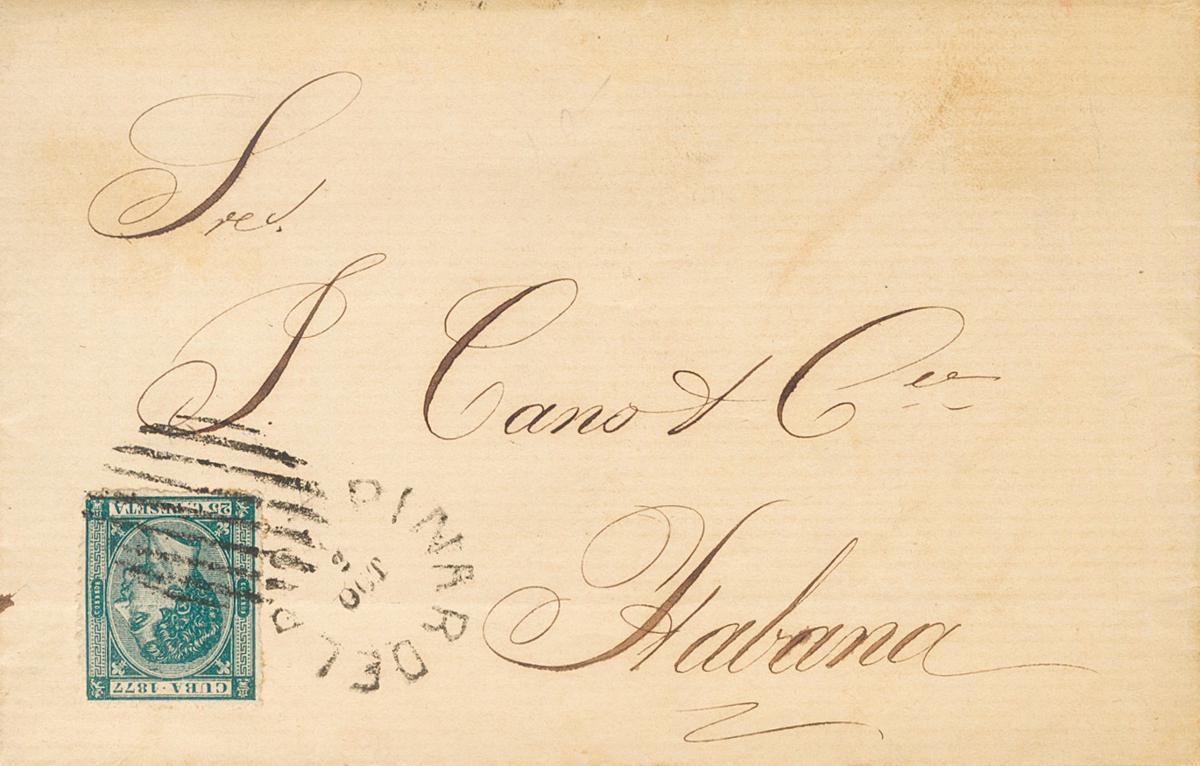 Sres.
J. Cano & Cia
Habana
25 C. PESETA
CUBA · 1877
PINAR DEL RIO